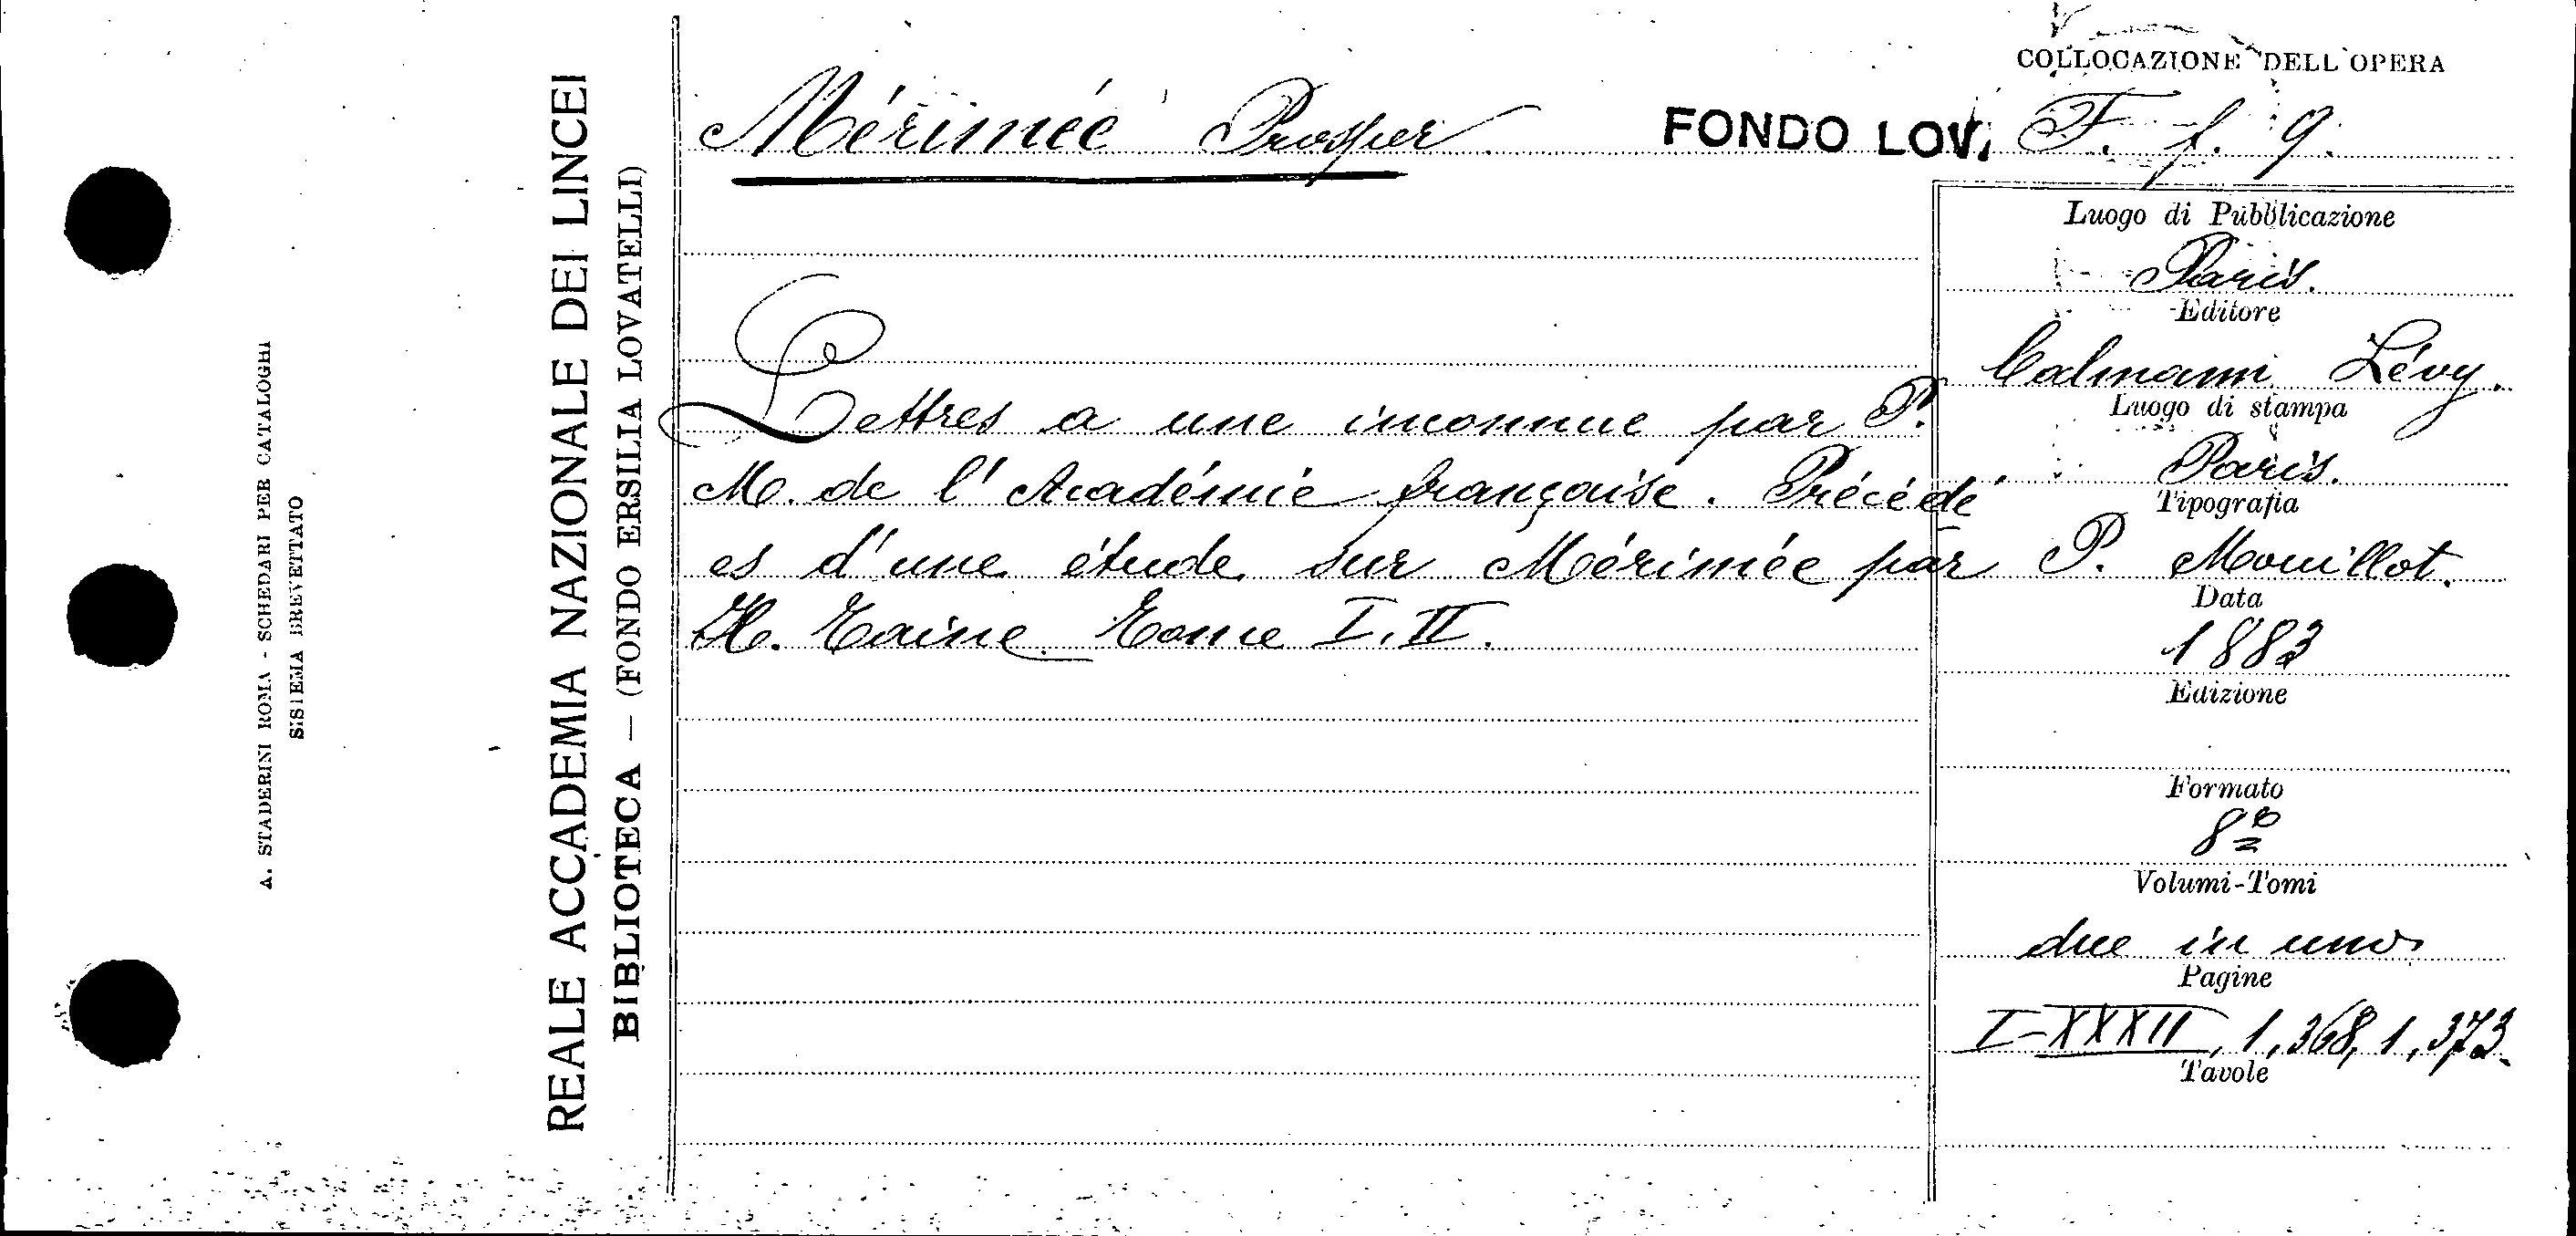 A. STADERINI ROMA - SCHEDARI PER CATALOGHI
SISTEMA BREVETTATO
REALE ACCADEMIA NAZIONALE DEI LINCEI
BIBLIOTECA — (FONDO ERSILIA LOVATELLI)
COLLOCAZIONE DELL'OPERA
Mérimée Prosper
FONDO LOV. F. f. 9.
Lettres a une inconnue par P.
M. de l'Académie française. Précédé
es d'une étude sur Mérimée par
H. Taine. Tome I. II.
Luogo di Pubblicazione
Paris.
Editore
Calmann Lévy.
Luogo di stampa
Paris.
Tipografia
P. Mouillot.
Data
1883
Edizione
Formato
8º
Volumi-Tomi
due in uno
Pagine
I-XXXII, 1,368, 1,373.
Tavole